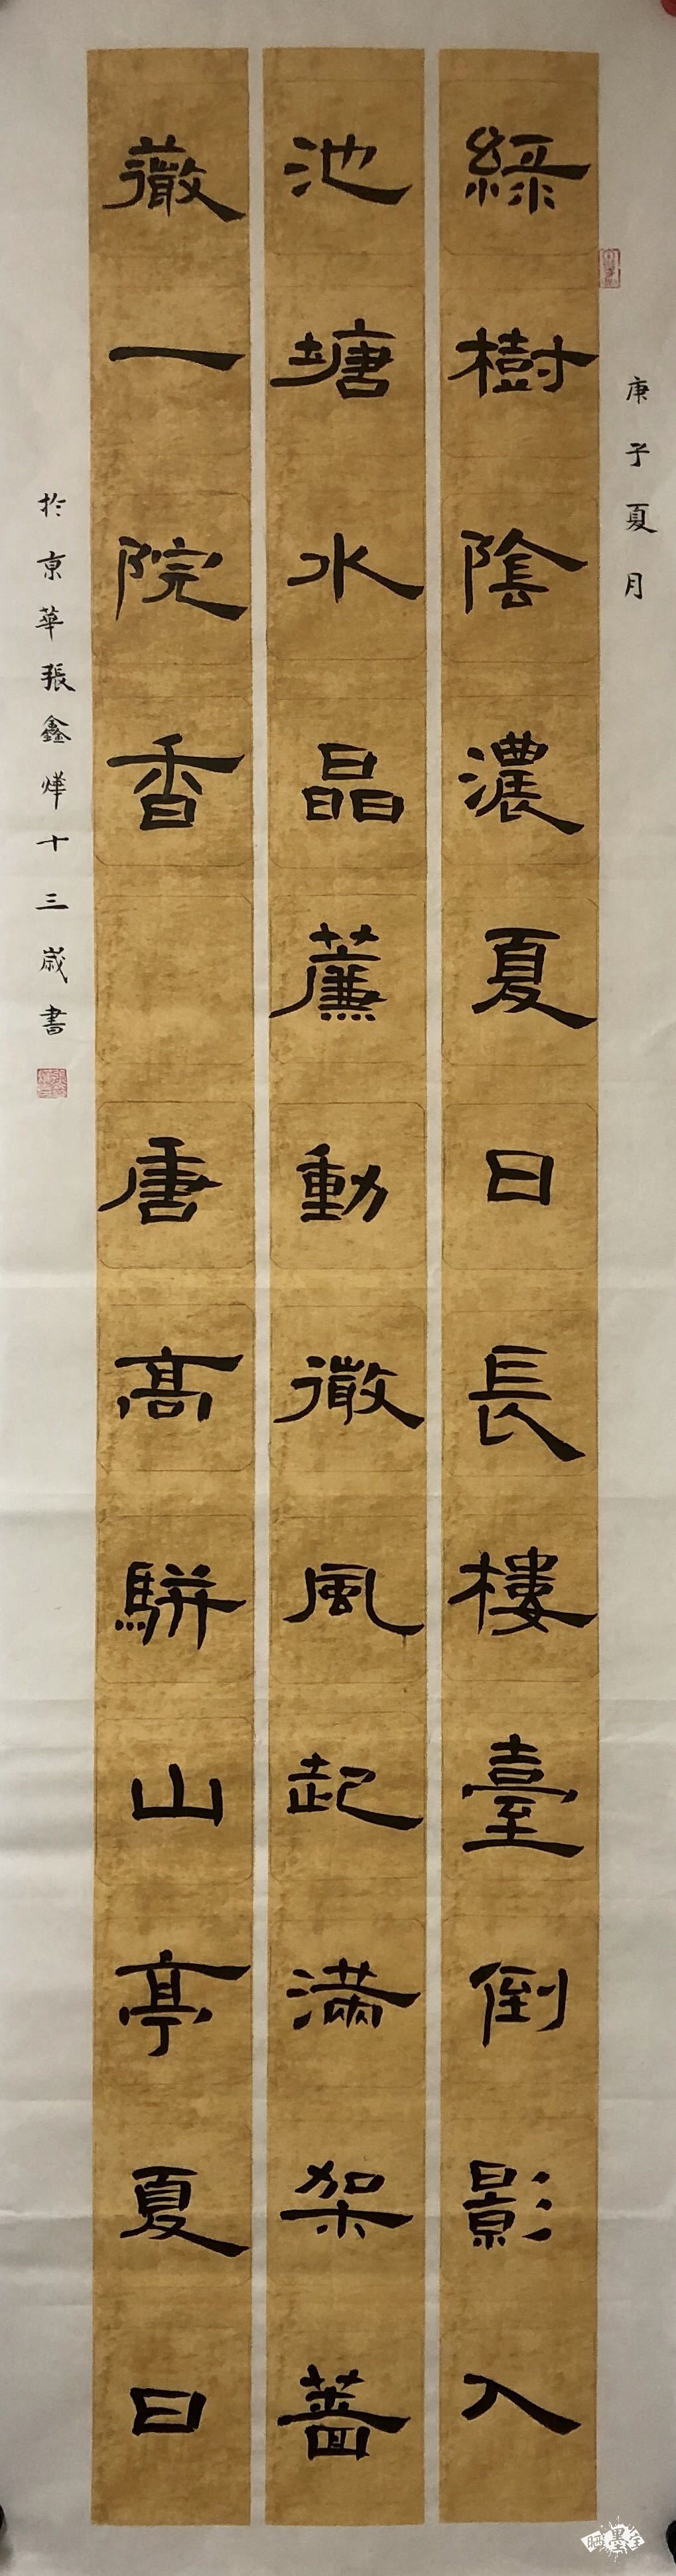 庚子夏月
綠樹陰濃夏日長樓臺倒影入
池塘水晶簾動微風起滿架薔
薇一院香 唐高駢山亭夏日
於京華張鑫燁十三歲書
晒墨宝